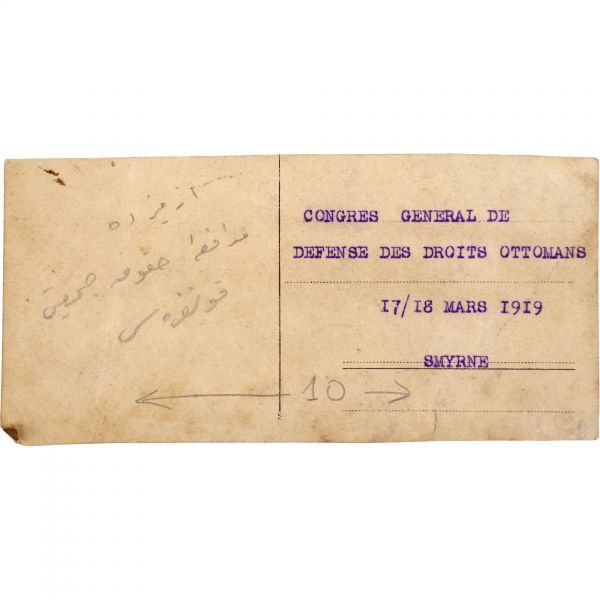 ازميرده
مدافعهٔ حقوقيه جمعيتى
قونغره سى
CONGRES GENERAL DE
DEFENSE DES DROITS OTTOMANS
17/18 MARS 1919
SMYRNE
10